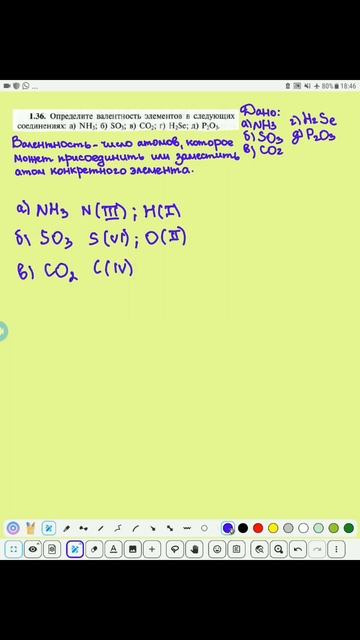 80% 18:46
1.36. Определите валентность элементов в следующих
соединениях: а) NH₃; б) SO₃; в) CO₂; г) H₂Se; д) P₂O₃.
Дано:
а) NH₃ г) H₂Se
б) SO₃ д) P₂O₃
в) CO₂
Валентность - число атомов, которое
может присоединить или заместить
атом конкретного элемента.
а) NH₃ N(III); H(I)
б) SO₃ S(VI); O(II)
в) CO₂ C(IV)